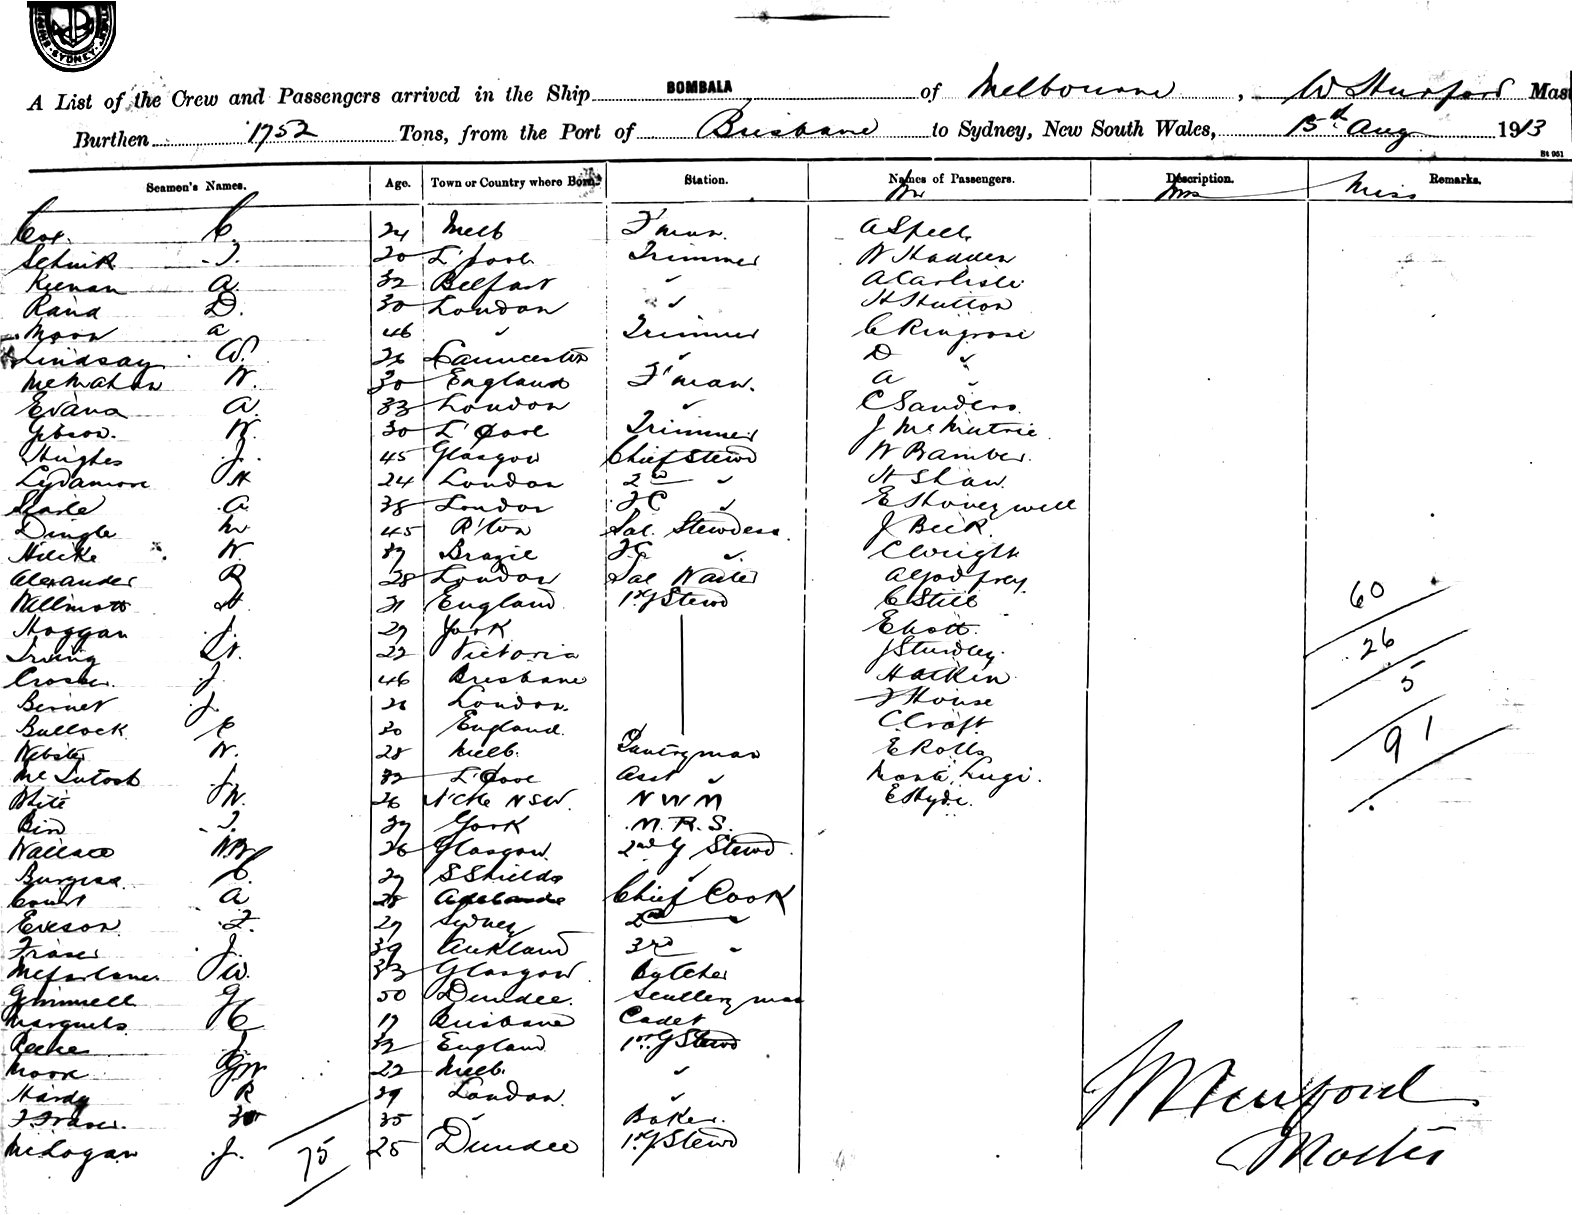 SYDNEY
A List of the Crew and Passengers arrived in the Ship BOMBALA of Melbourne, W Sturford Mas
Burthen 1752 Tons, from the Port of Brisbane to Sydney, New South Wales, 15th Aug 1913
Bt 951
Seamen's Names. Age. Town or Country where Born. Station. Names of Passengers. Description. Remarks.
Mr Mrs Miss
Cox. C. 24 Melb F'man. A Speck
T. 20 L'pool Trimmer W Hadden
Keenan A. 32 Belfast " A Carlisle
Raina D. 30 London " H Hutton
Moon a 46 " Trimmer C Ringrose
Lindsay W. 26 Launceston " D "
McMahon W. 30 England F'man. A "
Evans A. 33 London " C Sanders
Gibson. W. 30 L'pool Trimmer J McMutrie
Hughes J. 45 Glasgow Chief Stewd W Bamber.
Lydamore H 24 London 2nd " H Shaw.
A. 38 London F C " E Honeywell
Dingle M 45 R'ton Sal. Stewdess. J Beck.
Hilcke W. 37 Brazil F.C. " C Wright
Alexander R 28 London Sal Waiter A Godfrey.
Willmott H 21 England 1st G Stewd C Still 60
Hoggan J. 29 York E 26
Irving W. 22 Victoria J Sturdley. 5
Crosser. J. 46 Brisbane H Atkin 91
Bernet J. 26 London. J House
Bullock C 30 England C Craft
Webster W. 28 Melb. Pantryman E Rolls
McIntosh J 32 L'pool Asst " Luigi.
White W. 26 N'cle NSW. N W M E Hyde.
Bird T. 39 York M. R. S.
Wallace WW 26 Glasgow. 2nd G Stewd.
Burgess. C. 29 S Shields "
Court A 28 Adelaide Chief Cook
Eveson. F. 29 Sydney 2nd "
Fraser J. 39 Auckland 3rd "
McFarlane W. 33 Glasgow Butcher
Gemmell G 50 Dundee. Scullery man
Marquels H C 19 Brisbane Cadet
J. 32 England 1st G Stewd
Moore GW 22 Melb. "
Hardy R 39 London. "
F Fraser. 35 " Baker.
McLogan J. 25 Dundee 1st G Stewd
75
W Sturford
Master